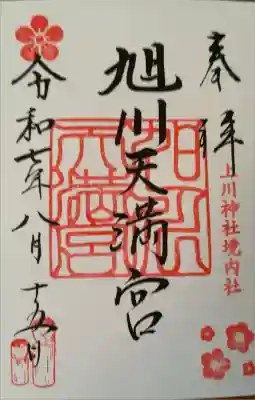 奉拝
上川神社境内社
旭川天満宮
令和七年八月十五日
旭川天満宮